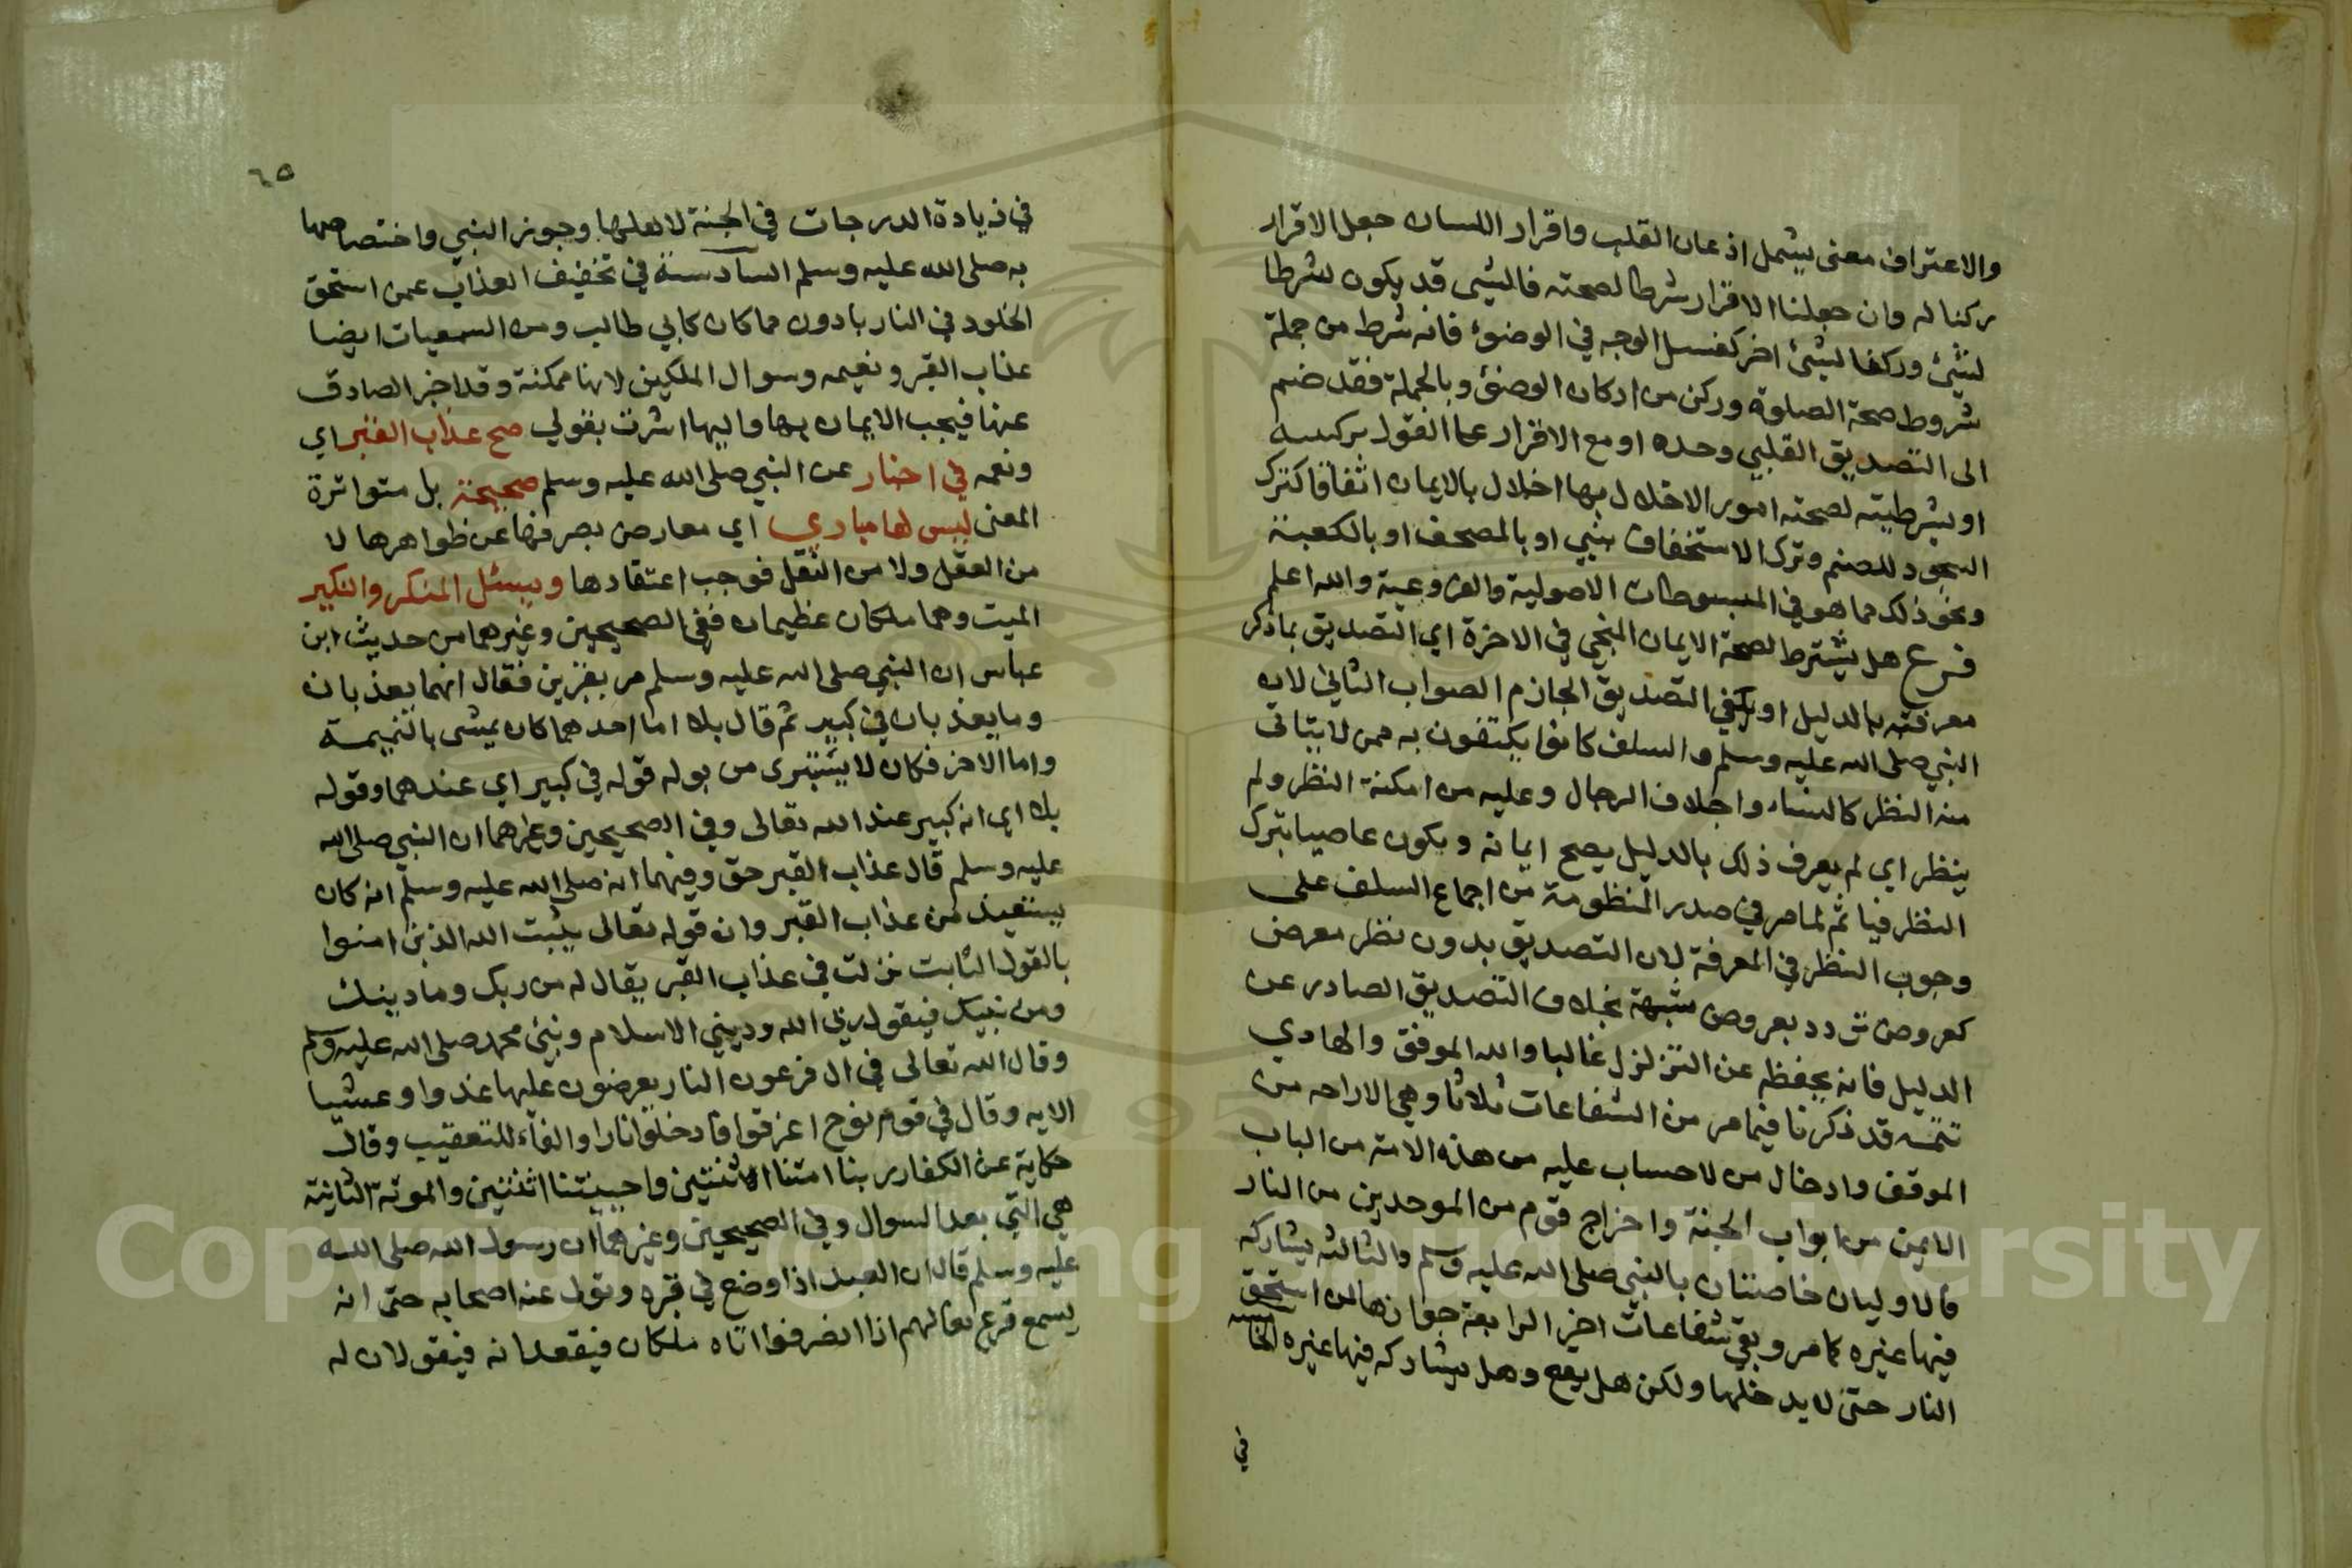 والاعتراف معنى يشمل اذعان القلب واقرار اللسان جعل الاقرار
ركنا له وان جعلنا الاقرار شرطا لصحته فالشيى قد يكون شرطا
لشيئ وركنا لشيئ اخر كغسل الوجه في الوضوء فانه شرط من جملة
شروط صحة الصلوة وركن من اركان الوضوء وبالجملة فقد ضم
الى التصديق القلبي وحده او مع الاقرار على القول بركنيته
او بشرطيته لصحته امور الاخلال بها اخلال بالايمان اتفاقا كترك
السجود للصنم وترك الاستخفاف بنبي او بالمصحف او بالكعبة
ونحو ذلك مما هو في المبسوطات الاصولية والفروعية والله اعلم
فرع هل يشترط لصحة الايمان المنجي في الاخرة اي التصديق بما ذكر
معرفته بالدليل او يكفي التصديق الجازم الصواب الثاني لان
النبي صلى الله عليه وسلم والسلف كانوا يكتفون به ممن لا يتاتى
منه النظر كالنساء واجلاف الرجال وعليه من امكنة النظر ولم
ينظر اي لم يعرف ذلك بالدليل يصح ايمانه ويكون عاصيا بترك
النظر فياثم لما مر في صدر المنظومة من اجماع السلف على
وجوب النظر في المعرفة لان التصديق بدون نظر معرض
كعروض تردد بعروض شبهة بخلاف التصديق الصادر عن
الدليل فانه يحفظه عن التزلزل غالبا والله الموفق والهادي
تتمه قد ذكرنا فيما مر من الشفاعات ثلاثا وهي الاراحه من
الموقف وادخال من لا حساب عليه من هذه الامة من الباب
الايمن من ابواب الجنة واخراج قوم من الموحدين من النار
فالاوليان خاصتان بالنبي صلى الله عليه وسلم والثالثه يشاركه
فيها غيره كما مر وبقي شفاعات اخر الرابعة جوازها لمن استحق
النار حتى لا يدخلها ولكن هل يقع وهل يشاركه فيها غيره الخامسه
في
٦٥
في زيادة الدرجات في الجنة لاهلها وجوز النبي واختصاصها
به صلى الله عليه وسلم السادسة في تخفيف العذاب عمن استحق
الخلود في النار بادون مما كان كابي طالب ومن السمعيات ايضا
عذاب القبر ونعيمه وسوال الملكين لانها ممكنة وقد اخبر الصادق
عنها فيجب الايمان بها واليها اشرت بقولي صح عذاب القبر اي
ونعمه في اخبار عن النبي صلى الله عليه وسلم صحيحة بل متواترة
المعنى ليس لها مباري اي معارض بصرفها عن ظواهرها لا
من العقل ولا من النقل فوجب اعتقادها ويسئل المنكر والنكير
الميت وهما ملكان عظيمان ففي الصحيحين وغيرهما من حديث ابن
عباس ان النبي صلى الله عليه وسلم مر بقبرين فقال انهما يعذبان
وما يعذبان في كبير ثم قال بلا اما احدهما كان يمشى بالنميمة
واما الاخر فكان لا يستبرى من بوله قوله في كبير اي عندهما وقوله
بلا اي انه كبير عند الله تعالى وفي الصحيحين وغيرهما ان النبي صلى الله
عليه وسلم قال عذاب القبر حق وفيهما انه صلى الله عليه وسلم انه كان
يستعيذ من عذاب القبر وان قوله تعالى يثبت الله الذين امنوا
بالقول الثابت نزلت في عذاب القبر يقال له من ربك وما دينك
ومن نبيك فيقول ربي الله وديني الاسلام ونبئي محمد صلى الله عليه وسلم
وقال الله تعالى في ال فرعون النار يعرضون عليها غدوا وعشيا
الايه وقال في قوم نوح اغرقوا فادخلوا نارا والفاء للتعقيب وقال
حكاية عن الكفار ربنا امتنا اثنتين واحييتنا اثنتين والموتة الثانية
هي التي بعد السوال وفي الصحيحين وغيرهما ان رسول الله صلى الله
عليه وسلم قال ان العبد اذا وضع في قبره وتولى عنه اصحابه حتى انه
يسمع قرع نعالهم اذا انصرفوا اتاه ملكان فيقعدانه فيقولان له